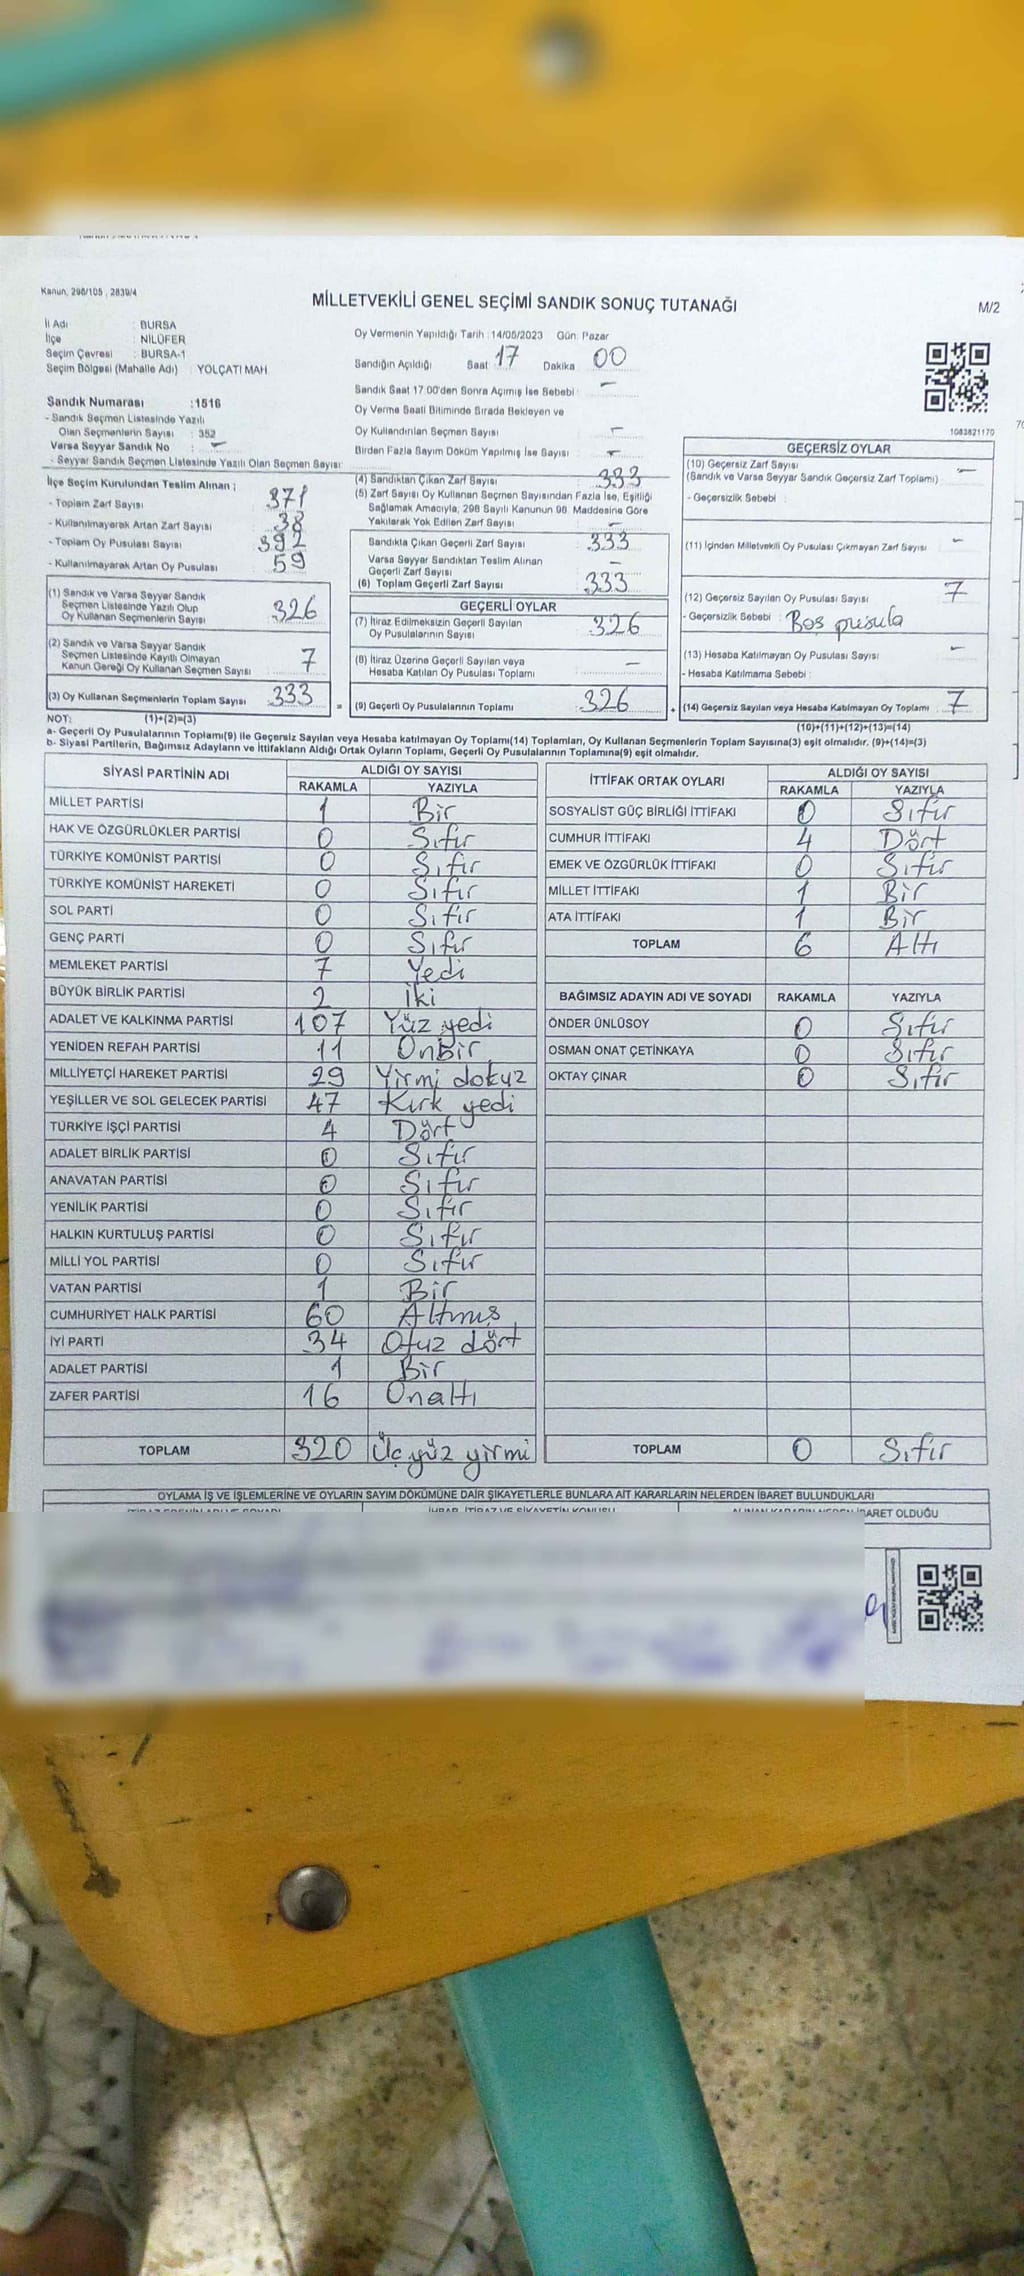 Kanun, 298/105 , 2839/4
MİLLETVEKİLİ GENEL SEÇİMİ SANDIK SONUÇ TUTANAĞI
M/2
İl Adı : BURSA
İlçe : NİLÜFER
Seçim Çevresi : BURSA-1
Seçim Bölgesi (Mahalle Adı) : YOLÇATI MAH
Sandık Numarası :1516
- Sandık Seçmen Listesinde Yazılı
Olan Seçmenlerin Sayısı : 352
Varsa Seyyar Sandık No : -
- Seyyar Sandık Seçmen Listesinde Yazılı Olan Seçmen Sayısı:
Oy Vermenin Yapıldığı Tarih :14/05/2023 Gün: Pazar
Sandığın Açıldığı Saat 17 Dakika 00
Sandık Saat 17.00'den Sonra Açımış İse Sebebi : -
Oy Verme Saati Bitiminde Sırada Bekleyen ve
Oy Kullandırılan Seçmen Sayısı : -
Birden Fazla Sayım Döküm Yapılmış İse Sayısı : -
1083821170
İlçe Seçim Kurulundan Teslim Alınan ;
- Toplam Zarf Sayısı 371
- Kullanılmayarak Artan Zarf Sayısı 38
- Toplam Oy Pusulası Sayısı 392
- Kullanılmayarak Artan Oy Pusulası 59
(1) Sandık ve Varsa Seyyar Sandık
Seçmen Listesinde Yazılı Olup
Oy Kullanan Seçmenlerin Sayısı 326
(2) Sandık ve Varsa Seyyar Sandık
Seçmen Listesinde Kayıtlı Olmayan
Kanun Gereği Oy Kullanan Seçmen Sayısı 7
(3) Oy Kullanan Seçmenlerin Toplam Sayısı 333
(4) Sandıktan Çıkan Zarf Sayısı 333
(5) Zarf Sayısı Oy Kullanan Seçmen Sayısından Fazla İse, Eşitliği
Sağlamak Amacıyla; 298 Sayılı Kanunun 98. Maddesine Göre
Yakılarak Yok Edilen Zarf Sayısı -
Sandıkta Çıkan Geçerli Zarf Sayısı 333
Varsa Seyyar Sandıktan Teslim Alınan
Geçerli Zarf Sayısı -
(6) Toplam Geçerli Zarf Sayısı 333
GEÇERLİ OYLAR
(7) İtiraz Edilmeksizin Geçerli Sayılan
Oy Pusulalarının Sayısı 326
(8) İtiraz Üzerine Geçerli Sayılan veya
Hesaba Katılan Oy Pusulası Toplamı -
= (9) Geçerli Oy Pusulalarının Toplamı 326
GEÇERSİZ OYLAR
(10) Geçersiz Zarf Sayısı
(Sandık ve Varsa Seyyar Sandık Geçersiz Zarf Toplamı) -
- Geçersizlik Sebebi :
(11) İçinden Milletvekili Oy Pusulası Çıkmayan Zarf Sayısı -
(12) Geçersiz Sayılan Oy Pusulası Sayısı 7
- Geçersizlik Sebebi : Boş pusula
(13) Hesaba Katılmayan Oy Pusulası Sayısı -
- Hesaba Katılmama Sebebi :
+ (14) Geçersiz Sayılan veya Hesaba Katılmayan Oy Toplamı 7
NOT: (1)+(2)=(3)
(10)+(11)+(12)+(13)=(14)
a- Geçerli Oy Pusulalarının Toplamı(9) ile Geçersiz Sayılan veya Hesaba katılmayan Oy Toplamı(14) Toplamları, Oy Kullanan Seçmenlerin Toplam Sayısına(3) eşit olmalıdır. (9)+(14)=(3)
b- Siyasi Partilerin, Bağımsız Adayların ve İttifakların Aldığı Ortak Oyların Toplamı, Geçerli Oy Pusulalarının Toplamına(9) eşit olmalıdır.
SİYASİ PARTİNİN ADI ALDIĞI OY SAYISI
RAKAMLA YAZIYLA
MİLLET PARTİSİ 1 Bir
HAK VE ÖZGÜRLÜKLER PARTİSİ 0 Sıfır
TÜRKİYE KOMÜNİST PARTİSİ 0 Sıfır
TÜRKİYE KOMÜNİST HAREKETİ 0 Sıfır
SOL PARTİ 0 Sıfır
GENÇ PARTİ 0 Sıfır
MEMLEKET PARTİSİ 7 Yedi
BÜYÜK BİRLİK PARTİSİ 2 İki
ADALET VE KALKINMA PARTİSİ 107 Yüz yedi
YENİDEN REFAH PARTİSİ 11 Onbir
MİLLİYETÇİ HAREKET PARTİSİ 29 Yirmi dokuz
YEŞİLLER VE SOL GELECEK PARTİSİ 47 Kırk yedi
TÜRKİYE İŞÇİ PARTİSİ 4 Dört
ADALET BİRLİK PARTİSİ 0 Sıfır
ANAVATAN PARTİSİ 0 Sıfır
YENİLİK PARTİSİ 0 Sıfır
HALKIN KURTULUŞ PARTİSİ 0 Sıfır
MİLLİ YOL PARTİSİ 0 Sıfır
VATAN PARTİSİ 1 Bir
CUMHURİYET HALK PARTİSİ 60 Altmış
İYİ PARTİ 34 Otuz dört
ADALET PARTİSİ 1 Bir
ZAFER PARTİSİ 16 Onaltı
TOPLAM 320 Üç yüz yirmi
İTTİFAK ORTAK OYLARI ALDIĞI OY SAYISI
RAKAMLA YAZIYLA
SOSYALİST GÜÇ BİRLİĞİ İTTİFAKI 0 Sıfır
CUMHUR İTTİFAKI 4 Dört
EMEK VE ÖZGÜRLÜK İTTİFAKI 0 Sıfır
MİLLET İTTİFAKI 1 Bir
ATA İTTİFAKI 1 Bir
TOPLAM 6 Altı
BAĞIMSIZ ADAYIN ADI VE SOYADI RAKAMLA YAZIYLA
ÖNDER ÜNLÜSOY 0 Sıfır
OSMAN ONAT ÇETİNKAYA 0 Sıfır
OKTAY ÇINAR 0 Sıfır
TOPLAM 0 Sıfır
OYLAMA İŞ VE İŞLEMLERİNE VE OYLARIN SAYIM DÖKÜMÜNE DAİR ŞİKAYETLERLE BUNLARA AİT KARARLARIN NELERDEN İBARET BULUNDUKLARI
İBARET OLDUĞU